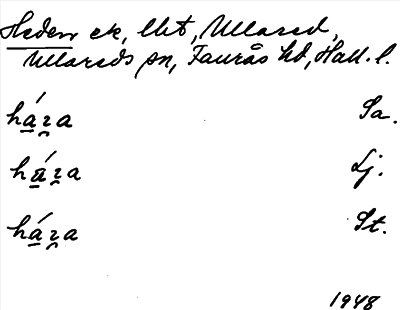 Heden ek, lht, Ullared,
Ullareds sn, Faurås hd, Hall. l.
háꝛa Sa.
háꝛa Lj.
háꝛa St.
1948